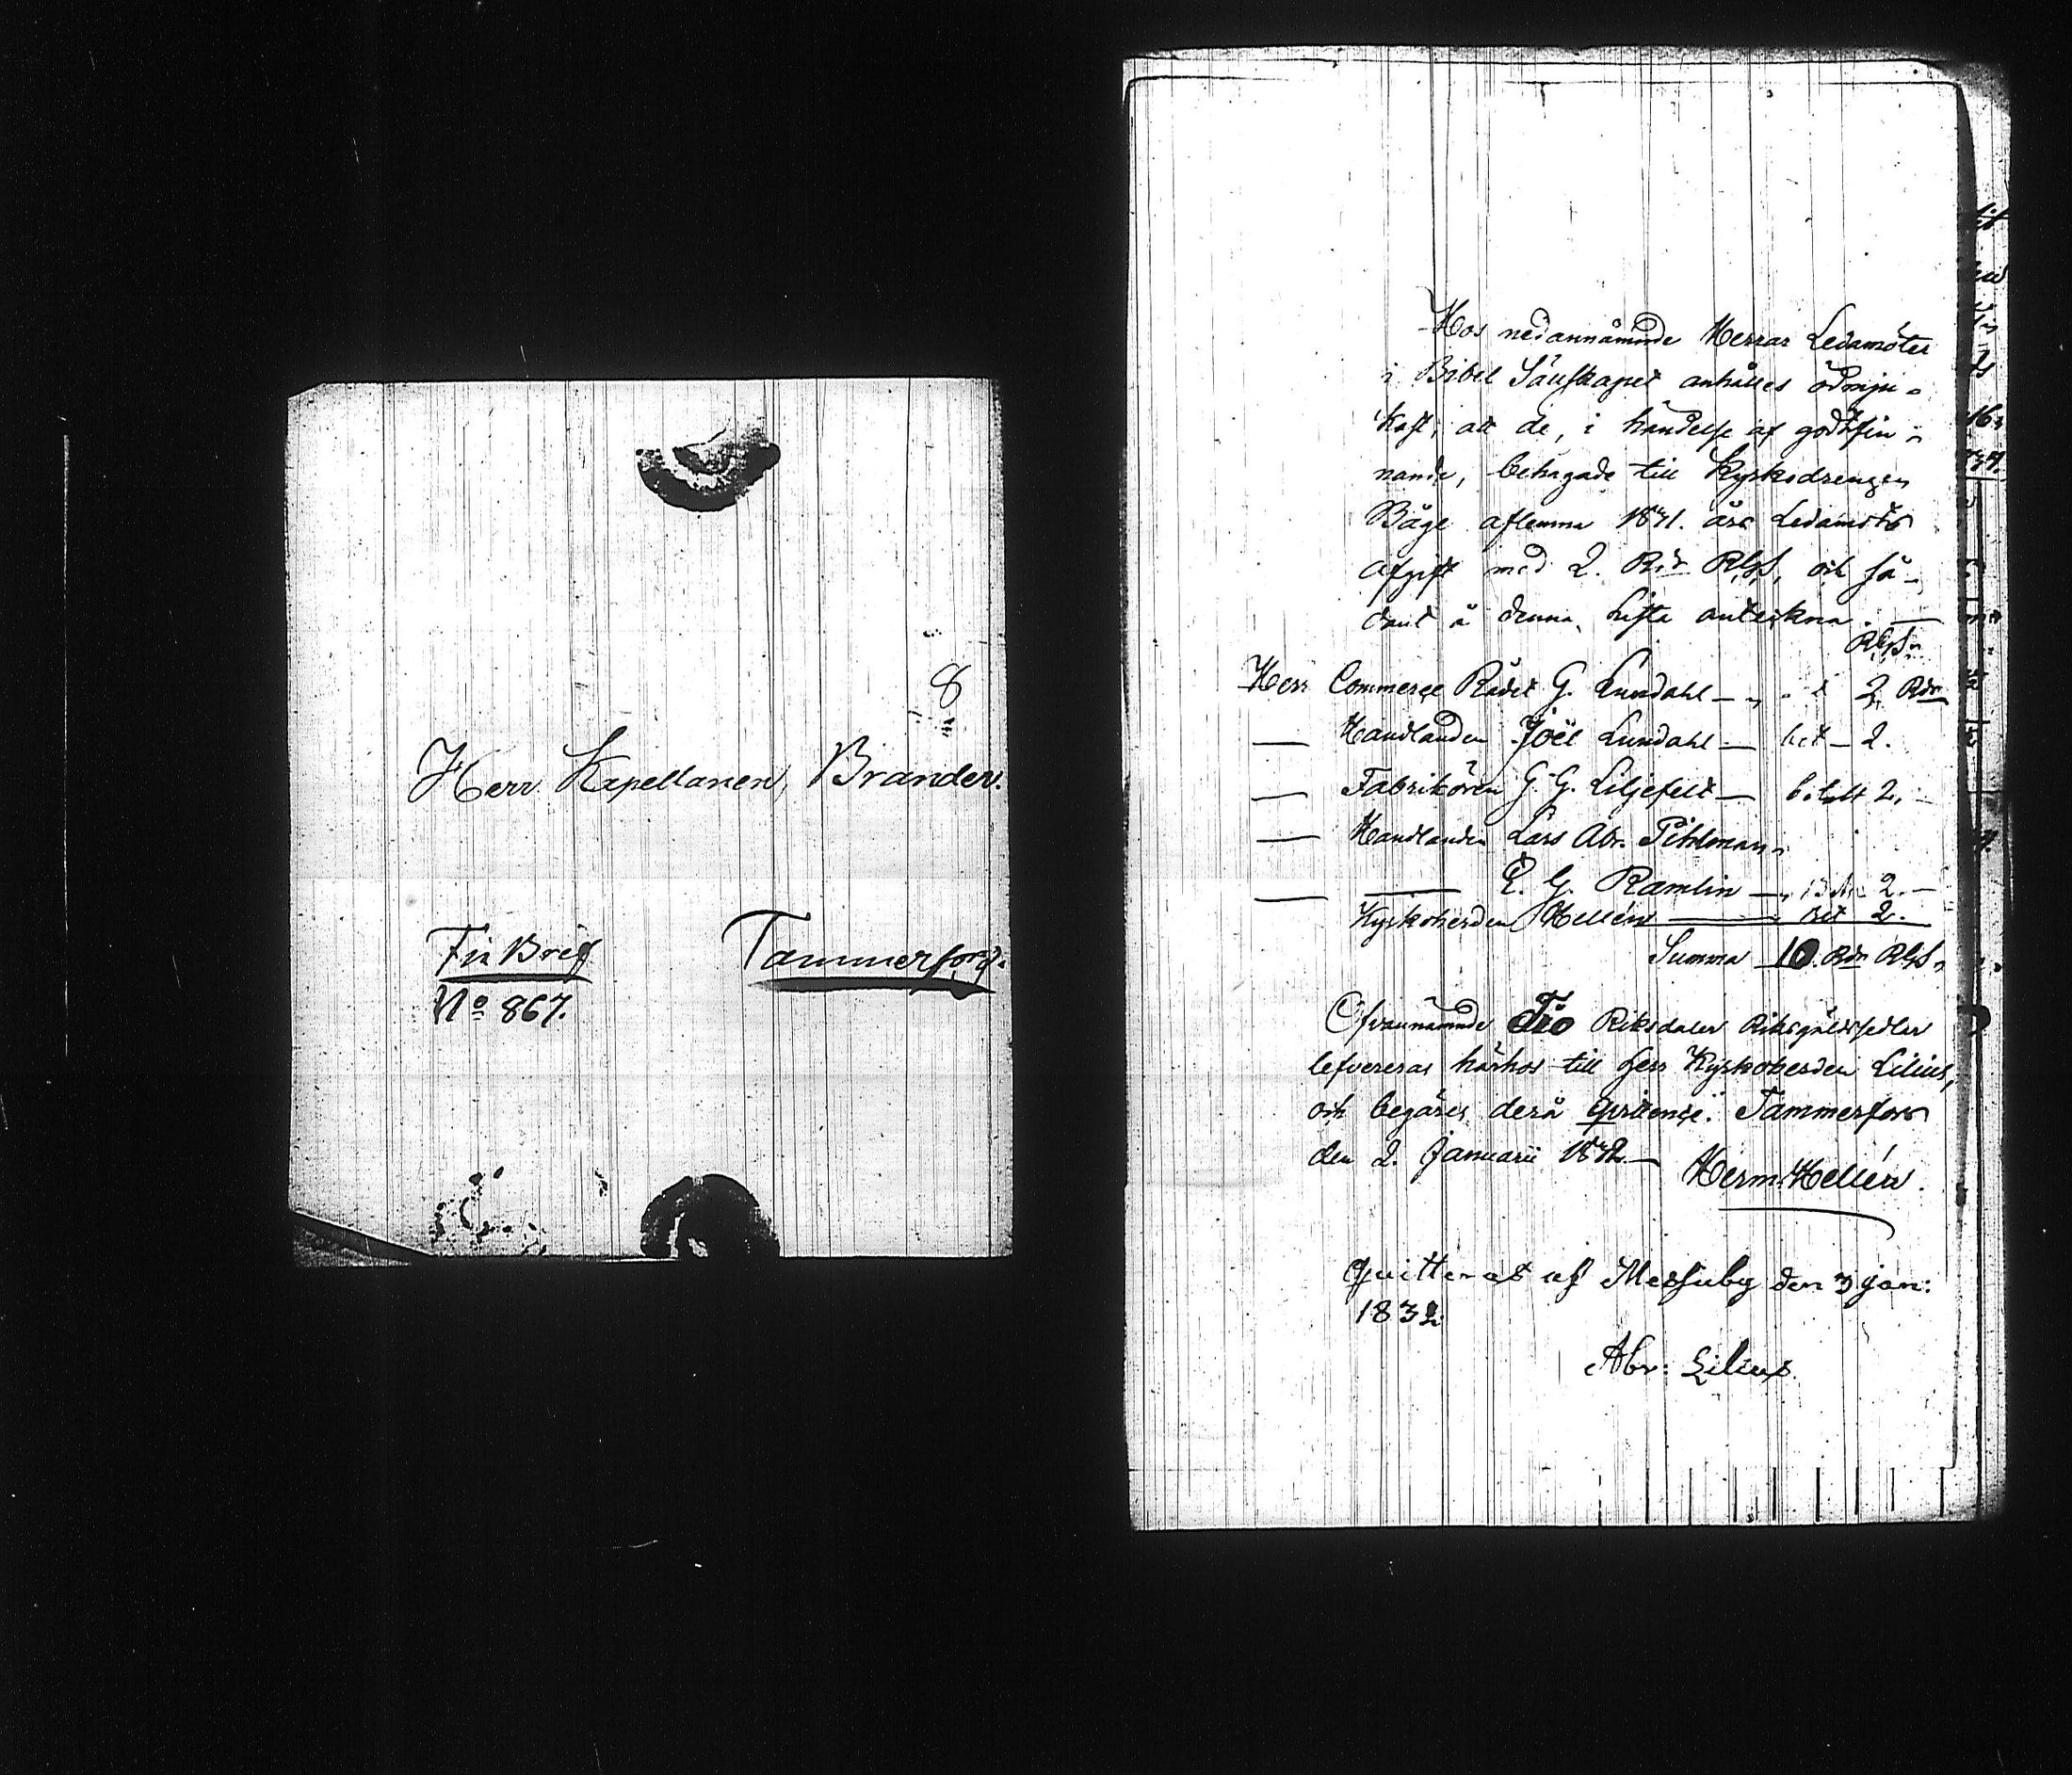 8
Herr Kapellanen, Brander.
Fri Bref
Tammerfors.
No 867.
Hos nedannämnde Herrar Ledamöter
i Bibel Sällskapet anhålles ödmju-
kast, att de, i händelse af godtfin-
nande, behagade till Kyrkodrengen
Båge aflemna 1831. års Ledamöts
afgift med 2. Rdr RgS, och så-
dant å denna Lista anteckna. —
RgS.
Herr Commerce Rådet G. Lundahl — 2 Rdr
— Handlanden Joël Lundahl — bet — 2.
— Fabrikören G. G. Liljefelt — betalt 2. —
— Handlanden Lars Abr. Pihlman
— — E. G. Ramlin — 2. —
Kyrkoherden Hellén — bet 2.
Summa 10. Rdr RgS.
Ofvannämnde Tio Riksdaler Riksgäldssedlar
lefvereras härhos till Herr Kyrkoherden Lilius,
och begäres derå qvittence. Tammerfors
den 2. Januarii 1832. — Herm. Hellén.
Quitteras af Messuby den 3 jan:
1832
Abr: Lilius.